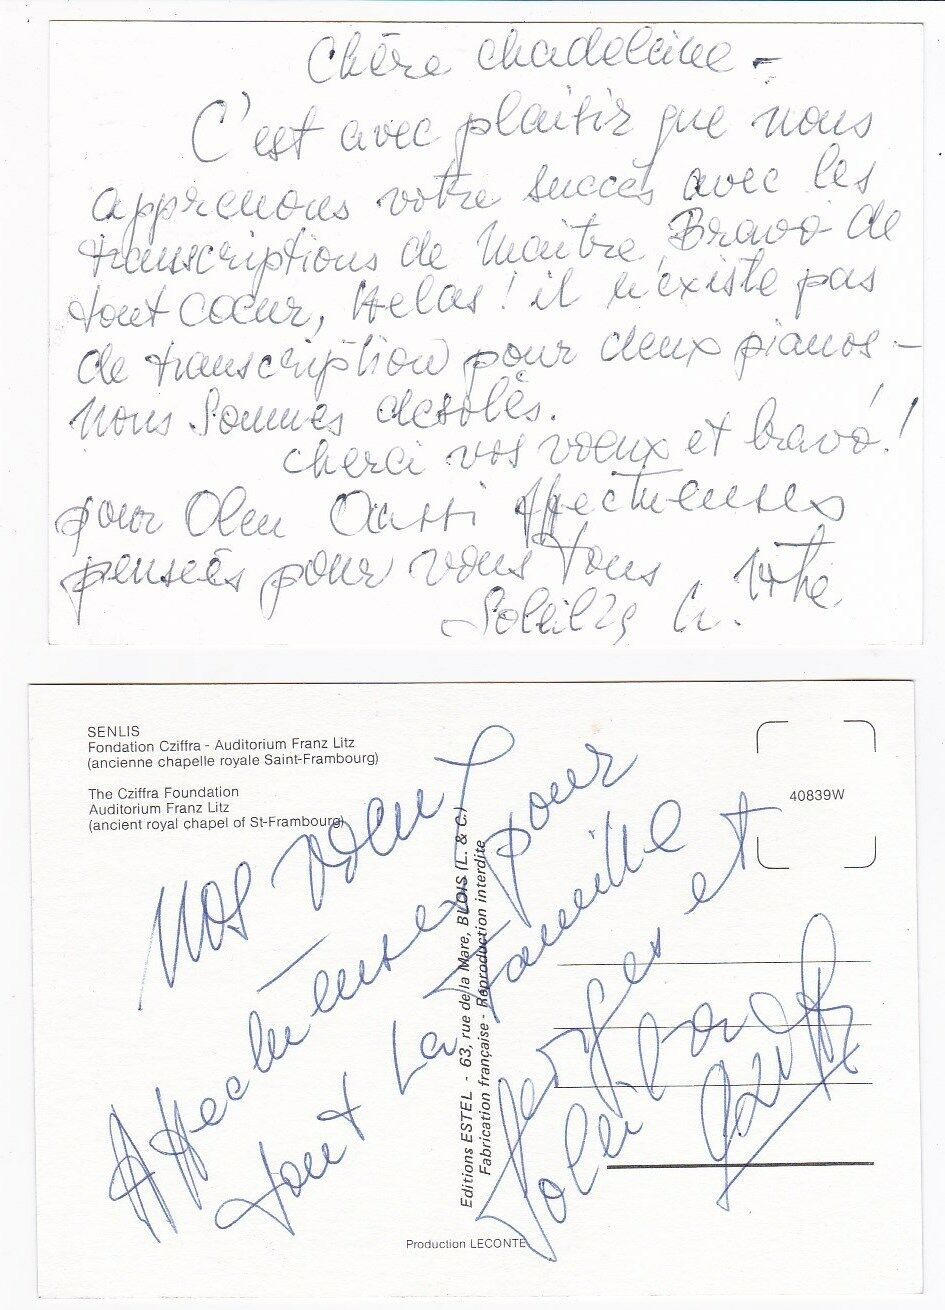 Chère Madeleine -
C'est avec plaisir que nous
apprenons votre succés avec les
transcriptions de Maître, Bravo de
tout coeur, Helas! il n'existe pas
de transcription pour deux pianos -
Nous sommes desolés.
Merci vos voeux et bravó!
pour Aussi Affectueuses
pensées pour vous tous
Soleilka
SENLIS
Fondation Cziffra - Auditorium Franz Litz
(ancienne chapelle royale Saint-Frambourg)
The Cziffra Foundation
Auditorium Franz Litz
(ancient royal chapel of St-Frambourg)
40839W
Nos voeux
Affectueuses pour
tout la famille
Georges et
Soleilka
Cziffra
Editions ESTEL - 63, rue de la Mare, BLOIS (L. & C.)
Fabrication française - Reproduction interdite
Production LECONTE